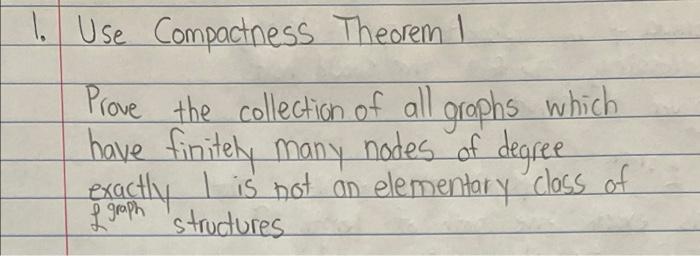 1. Use Compactness Theorem 1
Prove the collection of all graphs which
have finitely many nodes of degree
exactly 1 is not an elementary class of
ℒ graph structures